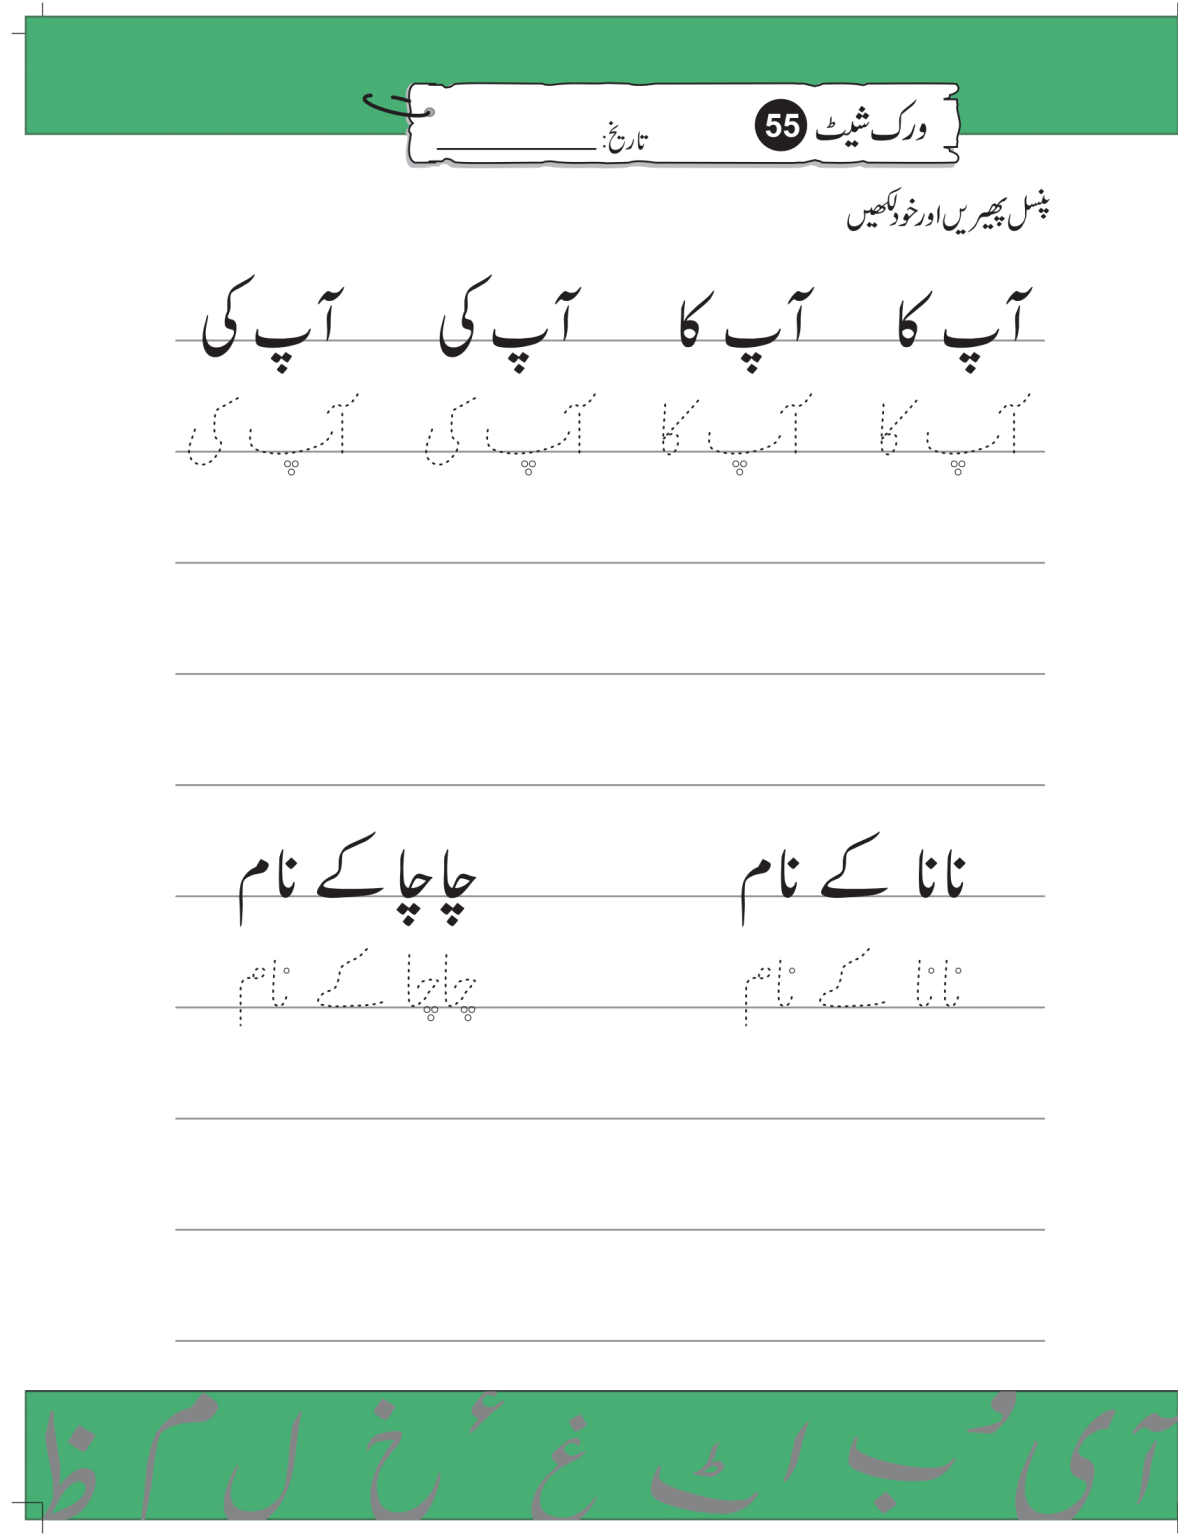 ورک شیٹ 55 تاریخ:
پنسل پھیریں اور خود لکھیں
آپ کا آپ کا آپ کی آپ کی
آپ کا آپ کا آپ کی آپ کی
نانا کے نام چاچا کے نام
نانا کے نام چاچا کے نام
آ ی و ب ا ٹ غ ء خ ل م ظ